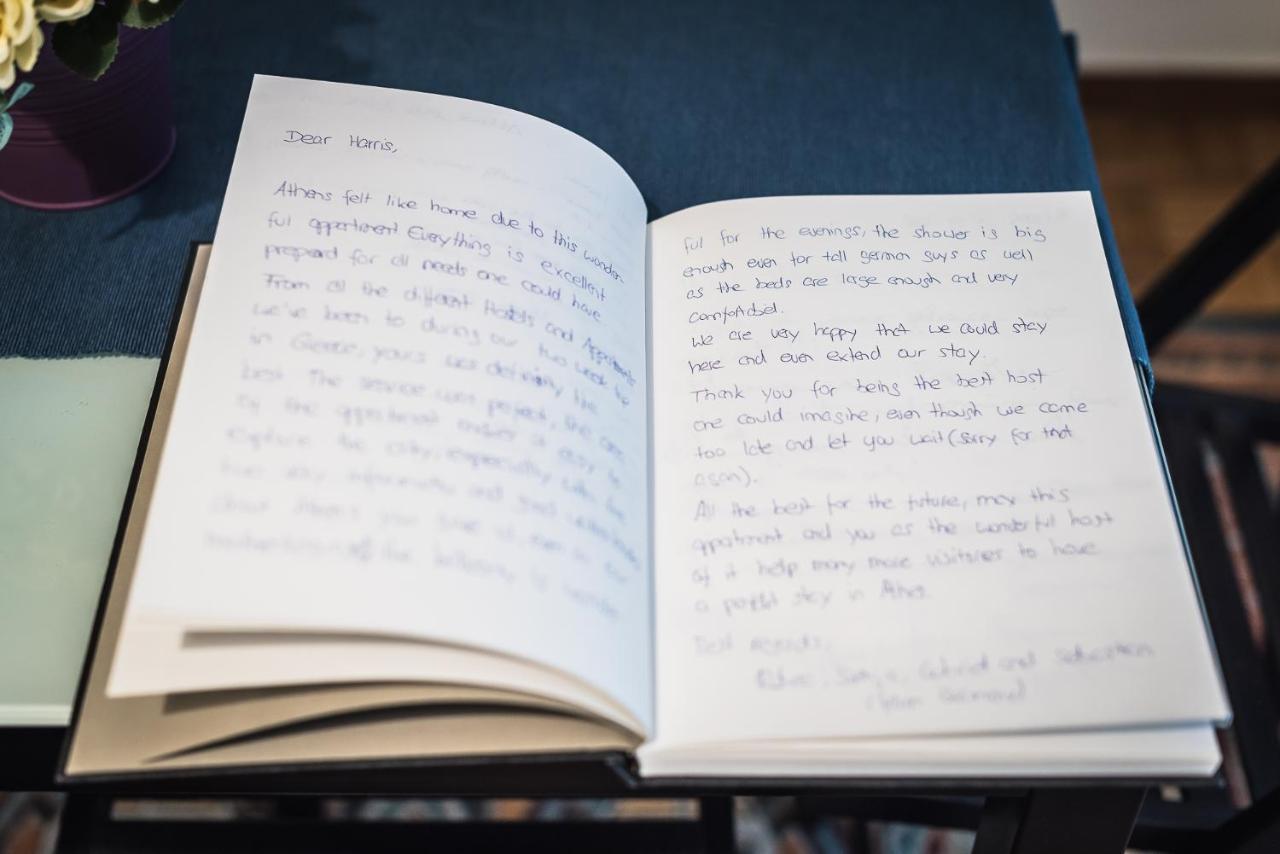 Dear Harris,
Athens felt like home due to this wonder
ful appartment Everything is excellent
prepared for all needs one could have
From all the different Hotels and Appartments
we've been to during our two week trip
in Greece, yours was definitely the
best The service was perfect, the
of the appartment makes it easy to
explore the city, especially with the
and good
about Athens you gave us, even
the balcony is wonder
ful for the evenings, the shower is big
enough even for tall german guys as well
as the beds are large enough and very
comfortabel.
We are very happy that we could stay
here and even extend our stay.
Thank you for being the best host
one could imagine, even though we come
too late and let you wait (sorry for that
again).
All the best for the future, may this
appartment and you as the wonderful host
of it help many more visitores to have
a perfect stay in Athen.
Best regards,
and Sebastian